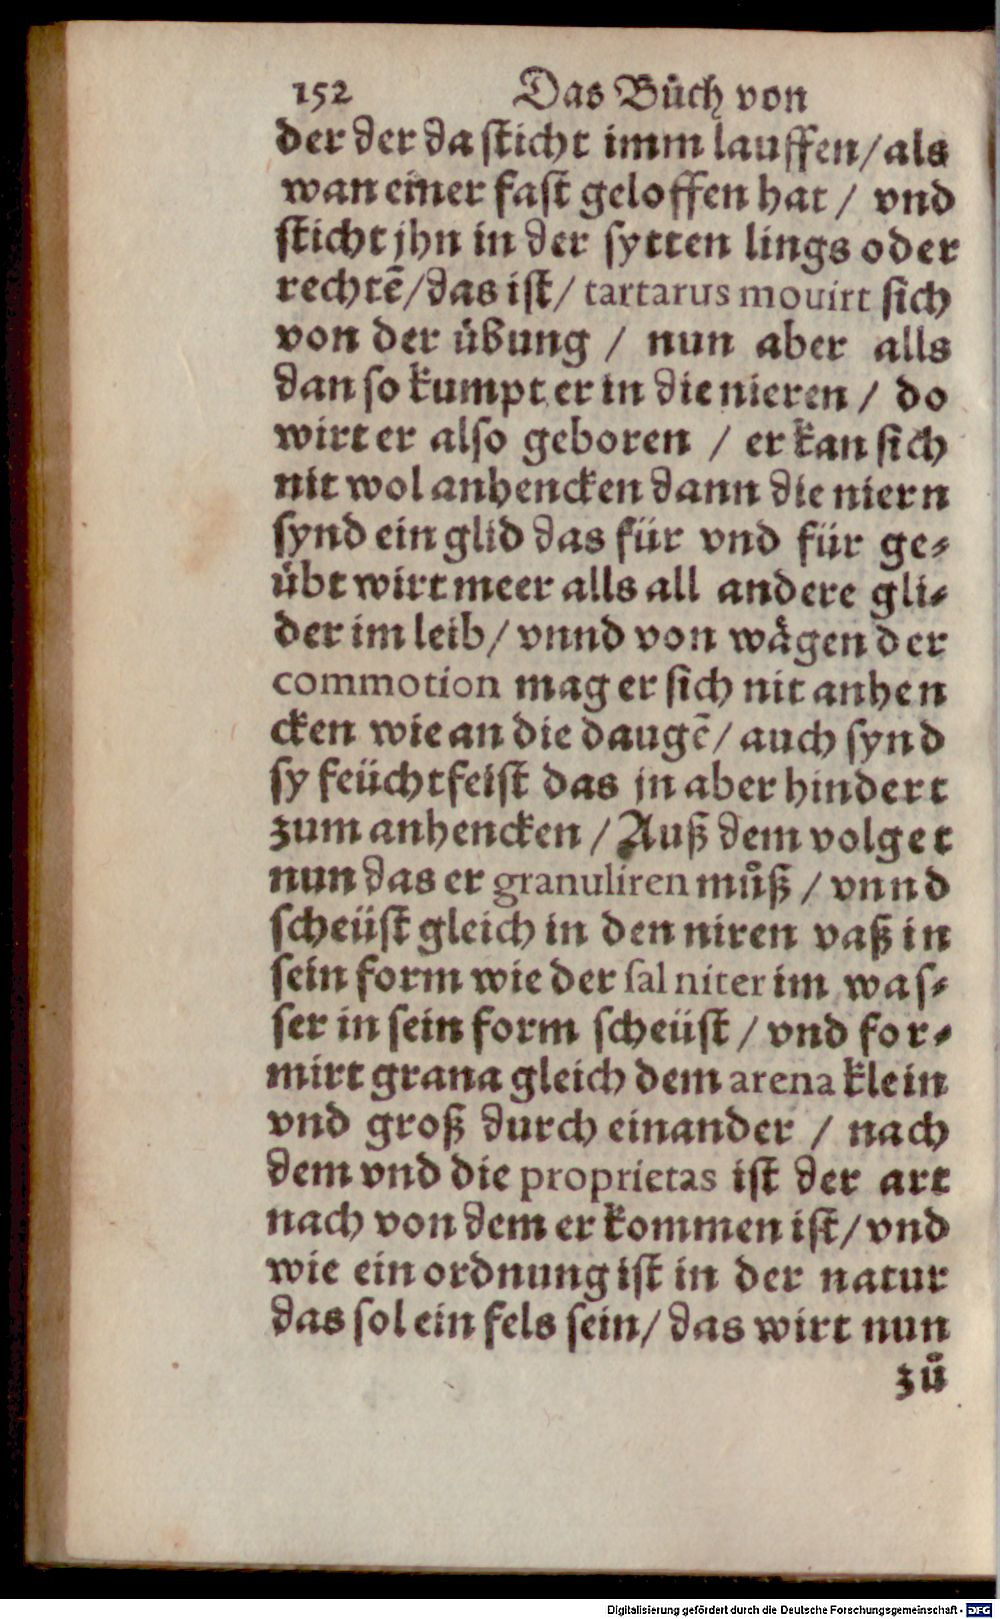 152 Das Bůch von
der der da sticht imm lauffen/als
wan einer fast geloffen hat / vnd
sticht jhn in der sytten lings oder
rechtẽ/das ist/ tartarus mouirt sich
von der übung / nun aber alls
dan so kumpt er in die nieren / do
wirt er also geboren / er kan sich
nit wol anhencken dann die niern
synd ein glid das für vnd für ge⸗
übt wirt meer alls all andere gli⸗
der im leib/ vnnd von wägen der
commotion mag er sich nit anhen
cken wie an die daugẽ/ auch synd
sy feücht feist das jn aber hindert
zum anhencken / Auß dem volget
nun das er granuliren můß / vnnd
scheüst gleich in den niren vaß in
sein form wie der sal niter im was⸗
ser in sein form scheüst / vnd for⸗
mirt grana gleich dem arena klein
vnd groß durch einander / nach
dem vnd die proprietas ist der art
nach von dem er kommen ist/ vnd
wie ein ordnung ist in der natur
das sol ein fels sein/ das wirt nun
zů
Digitalisierung gefördert durch die Deutsche Forschungsgemeinschaft - DFG